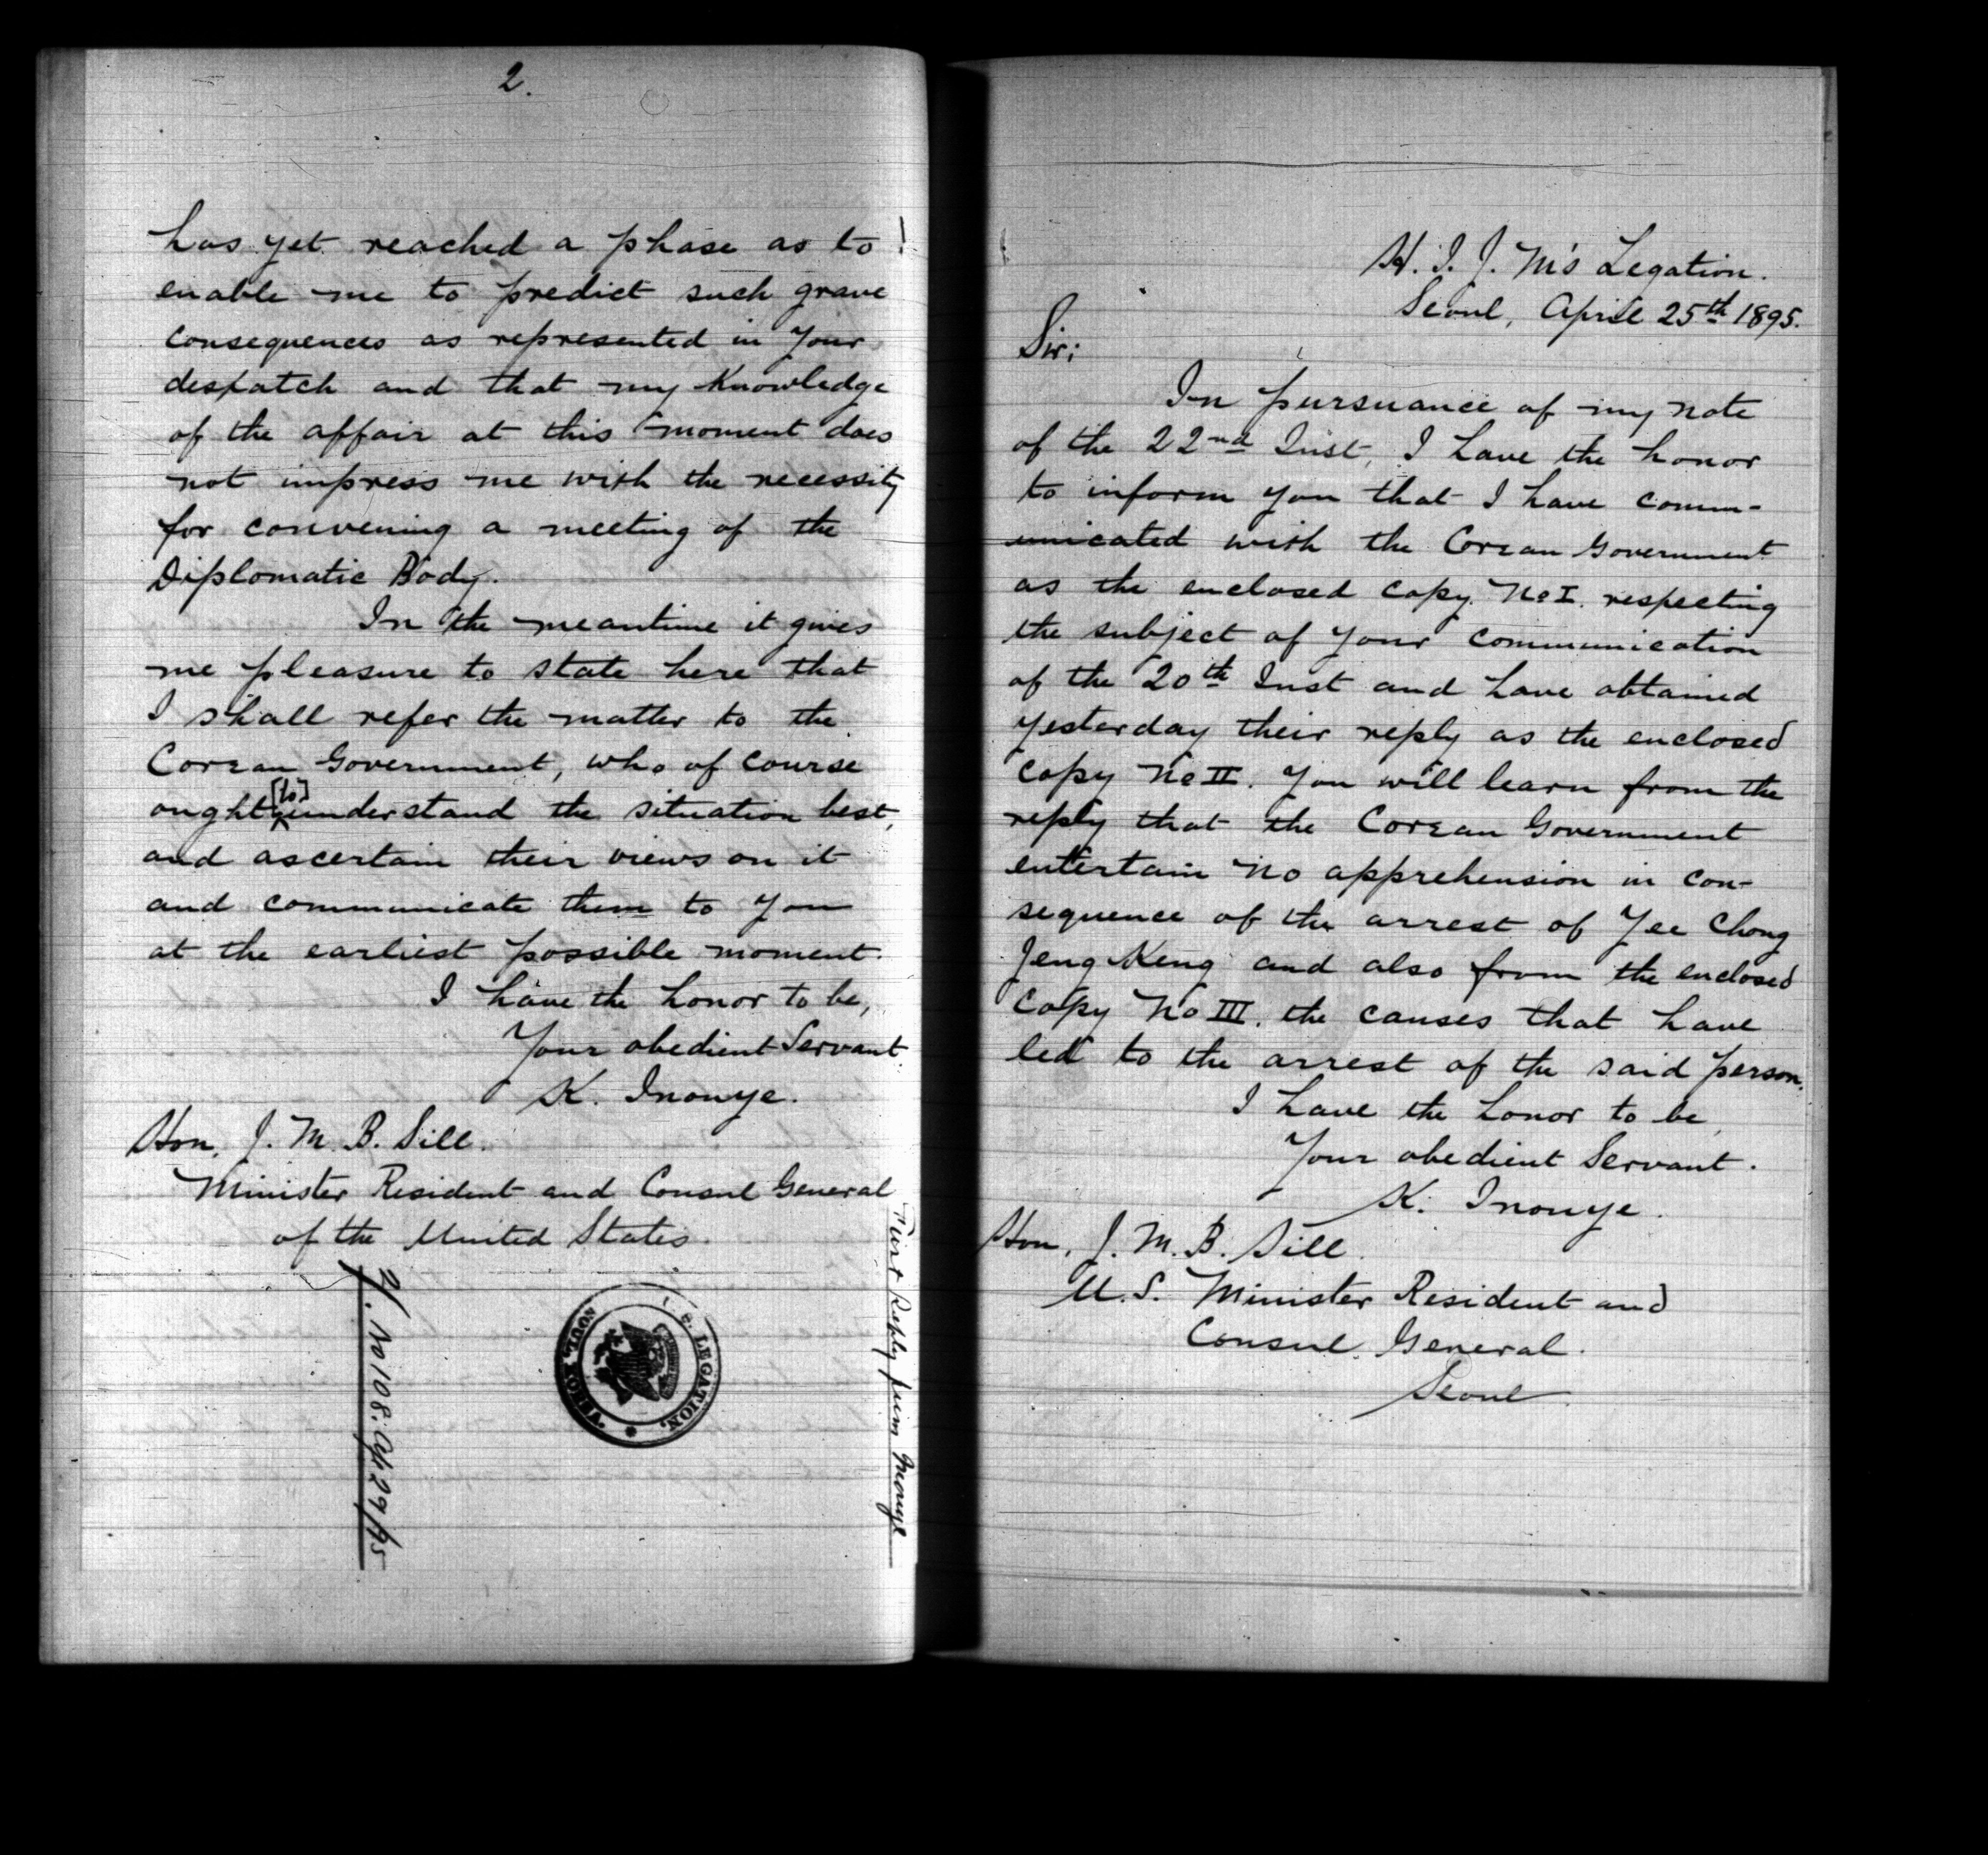 2.
has yet reached a phase as to
enable me to predict such grave
consequences as represented in Your
despatch and that my Knowledge
of the affair at this moment does
not impress me with the necessity
for convening a meeting of the
Diplomatic Body.
In the meantime it gives
me pleasure to state here that
I shall refer the matter to the
Corean Government, who of course
ought [to] understand the situation best,
and ascertain their views on it
and communicate them to You
at the earliest possible moment.
I have the honor to be,
Your obedient Servant.
K. Inouye.
Hon. J. M. B. Sill.
Minister Resident and Consul General
of the United States.
2/. No 108. Ap 29/95
First Reply from Inouye
U. S. LEGATION,
SEOUL, KOREA
H. I. J. M's Legation.
Seoul, April 25th 1895.
Sir:
In pursuance of my note
of the 22nd Inst, I have the honor
to inform you that I have comm-
unicated with the Corean Government
as the enclosed copy No I. respecting
the subject of Your communication
of the 20th Inst and have obtained
yesterday their reply as the enclosed
copy No II. You will learn from the
reply that the Corean Government
entertain no apprehension in con-
sequence of the arrest of Yee Chong
Jeng Keng and also from the enclosed
copy No III. the causes that have
led to the arrest of the said person.
I have the honor to be
Your obedient Servant.
K. Inouye.
Hon, J. M. B. Sill.
U. S. Minister Resident and
Consul General.
Seoul